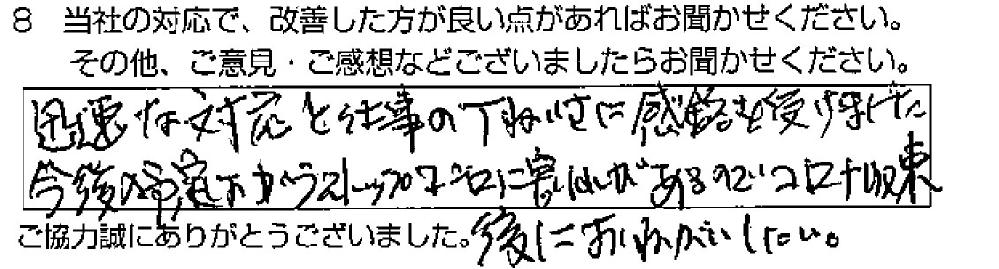 8 当社の対応で、改善した方が良い点があればお聞かせください。
その他、ご意見・ご感想などございましたらお聞かせください。
迅速な対応と仕事の丁ねいさに感銘を受けました
今後の予定ですがストップ
に割れがあるのでコロナ収束
ご協力誠にありがとうございました。後におねがいしたい。